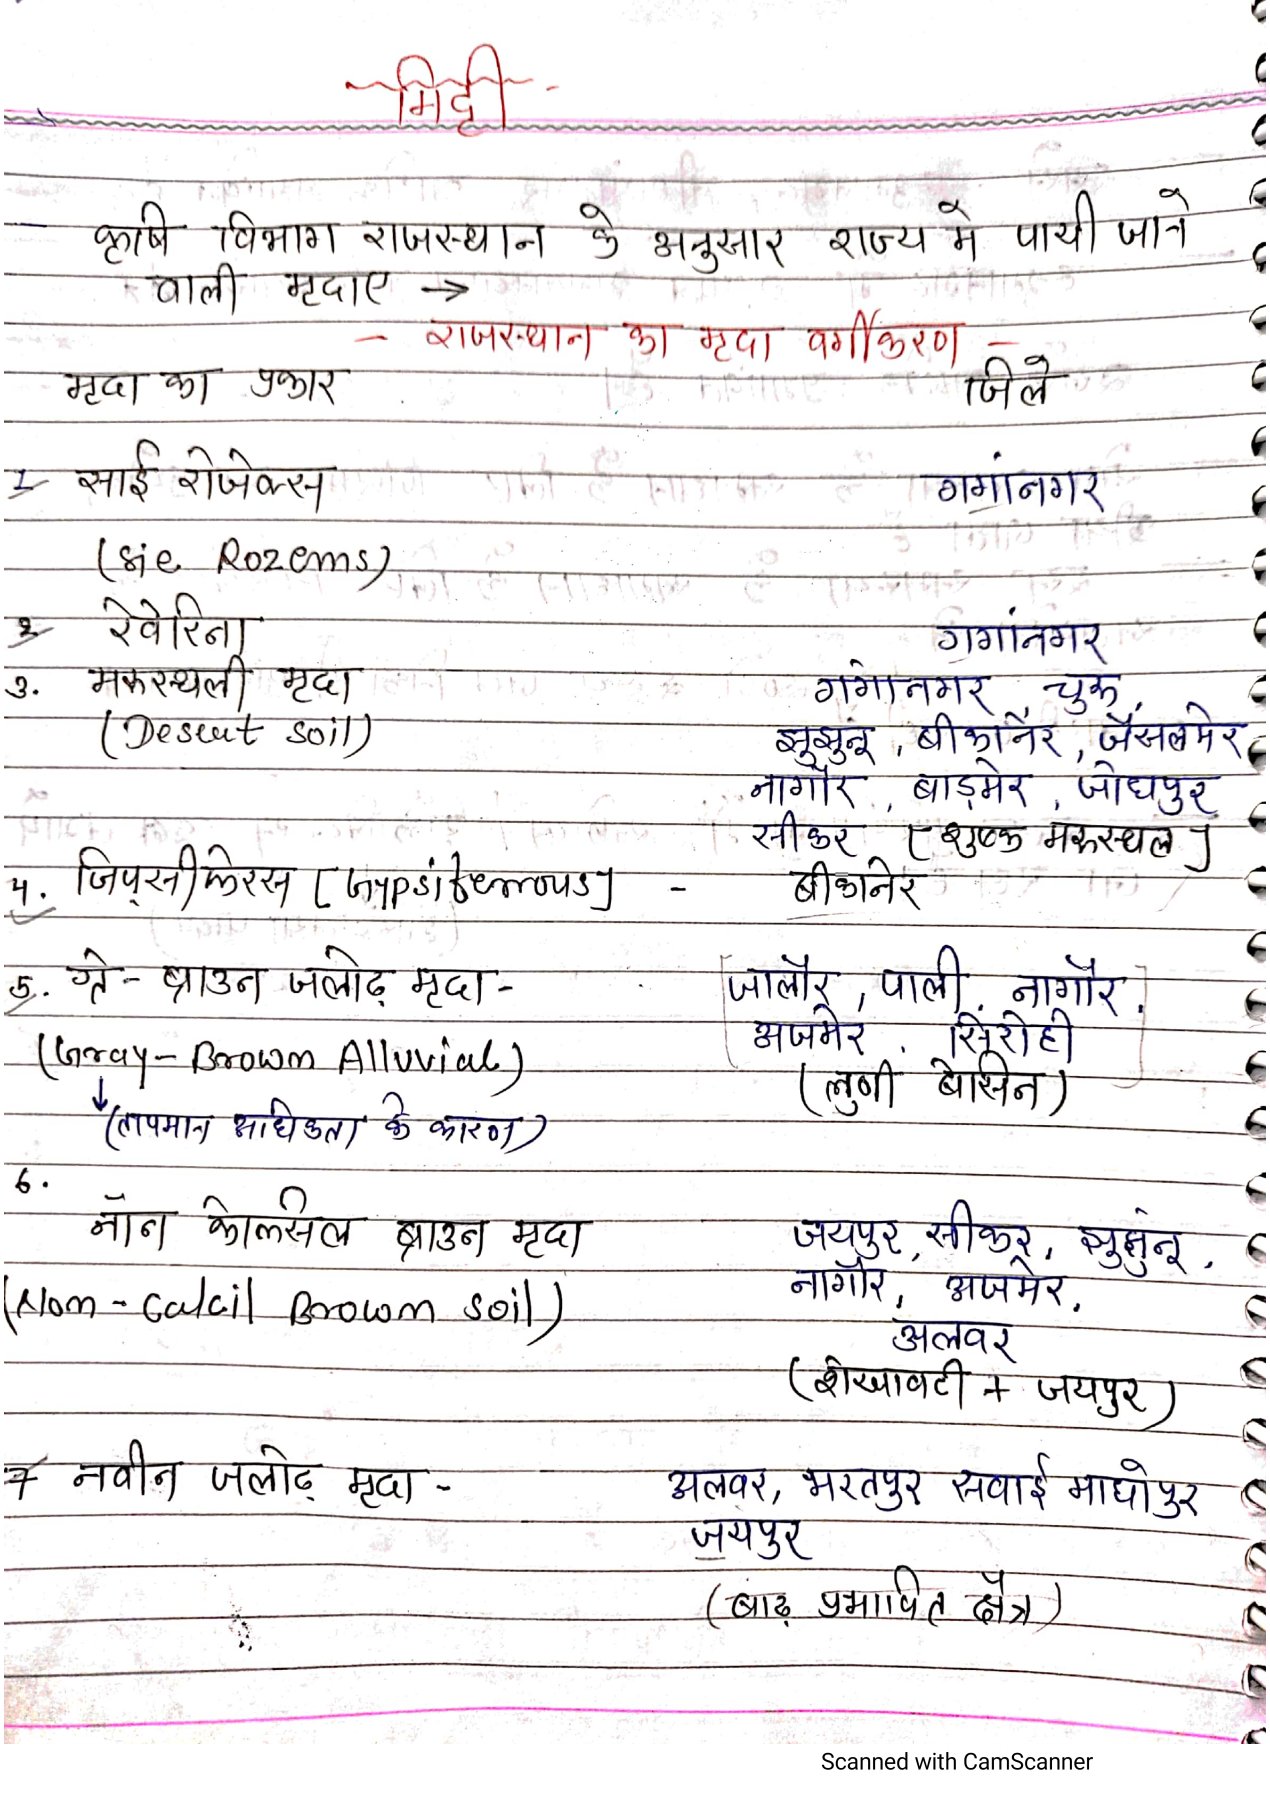 मिट्टी
कृषि विभाग राजस्थान के अनुसार राज्य मे पायी जाने
वाली मृदाए →
- राजस्थान का मृदा वर्गीकरण -
मृदा का प्रकार जिले
1 साई रोजेक्स गगांनगर
(sie Rozems)
2 रेवेरिना गगांनगर
3. मरुस्थली मृदा गंगानगर, चुरू,
(Desert soil) झुझुनूं, बीकानेर, जैसलमेर
नागौर, बाड़मेर, जोधपुर
सीकर [शुष्क मरुस्थल]
4. जिप्सीफेरस [Gypsiferrous] - बीकानेर
5. ग्रे - ब्राउन जलोढ़ मृदा - जालौर, पाली, नागौर,
अजमेर, सिरोही
(Gray - Brown Alluvial) (लुणी बेसिन)
↓ (तापमान अधिकता के कारण)
6.
नॉन केल्सिल ब्राउन मृदा जयपुर, सीकर, झुझुंनू,
नागौर, अजमेर,
(Non - Calcil Brown soil) अलवर
(शेखावटी + जयपुर)
7 नवीन जलोढ़ मृदा - अलवर, भरतपुर सवाई माधोपुर
जयपुर
(बाढ़ प्रभावित क्षैत्र)
Scanned with CamScanner